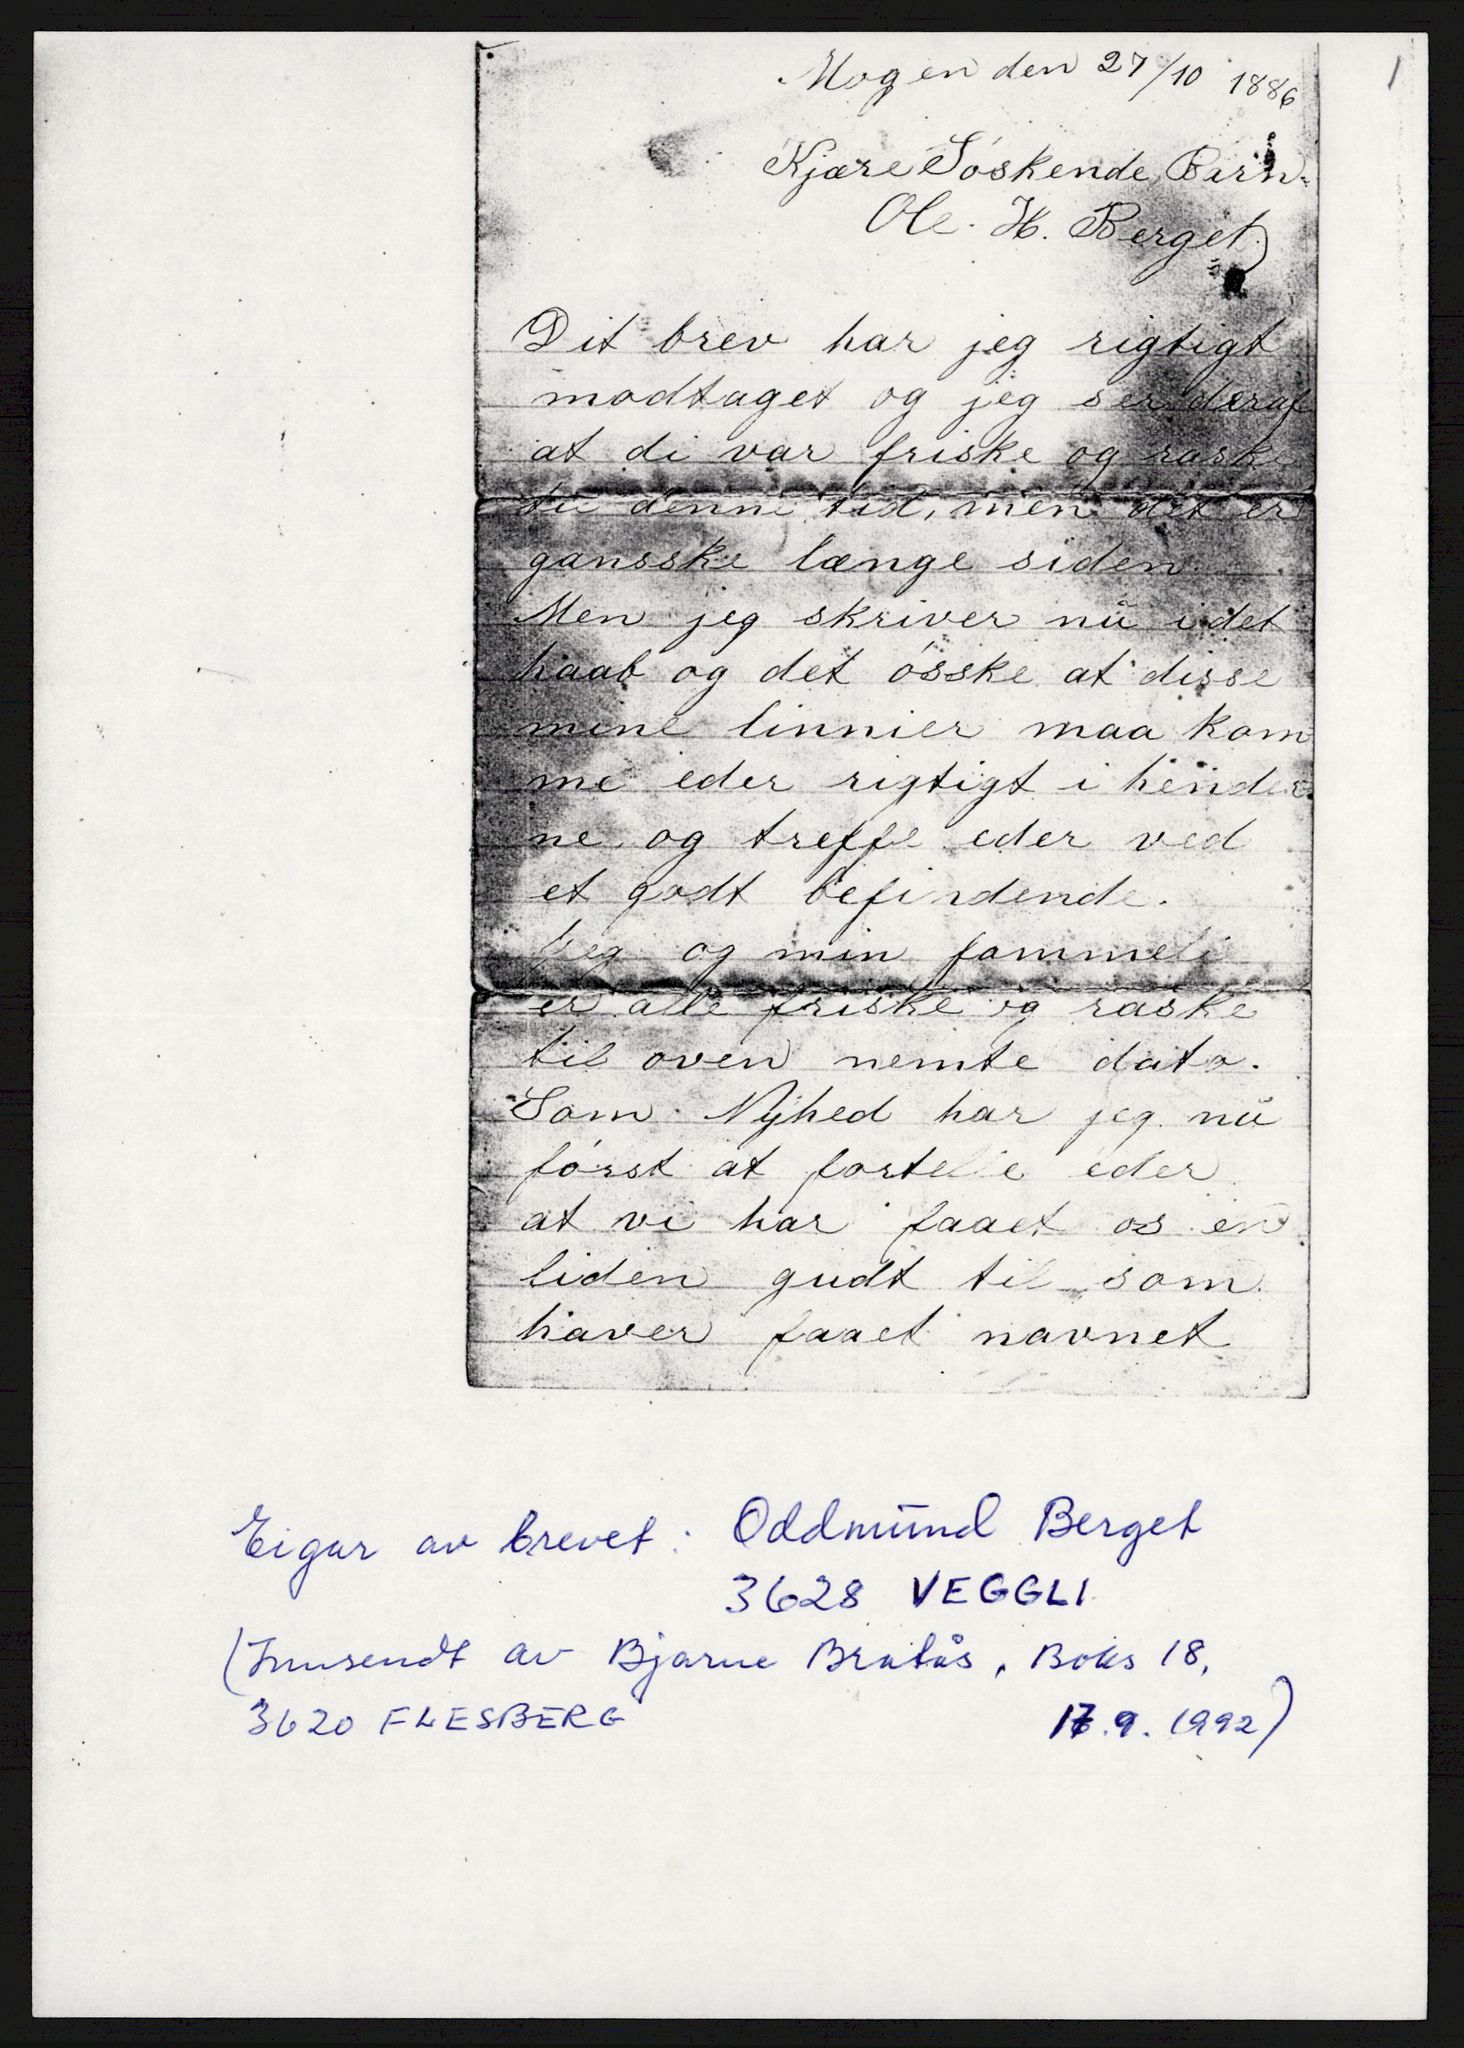 1
Mogen den 27/10 1886
Kjære Söskende Barn.
Ole. H. Berget
Dit brev har jeg rigtigt
modtaget og jeg ser deraf
at di var friske og raske
til denne tid, men det er
gansske længe siden.
Men jeg skriver nu i det
haab og det össke at disse
mine linnier maa kom
me eder rigtigt i hender
ne og treffe eder ved
et godt befindende.
Jeg og min fammeli
er alle friske og raske
til oven nemte dato.
Som Nyhed har jeg nu
först at fortelle eder
at vi har faaet os en
liden gudt til som
haver faaet navnet
Eigar av brevet: Oddmund Berget
3628 VEGGLI
(Innsendt av Bjarne Bratås, Boks 18,
3620 FLESBERG 17.9.1992)